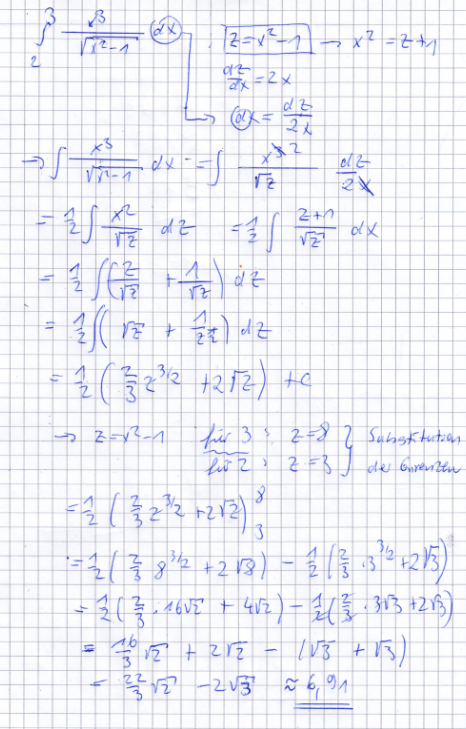 ∫₂³ x³/√(x²-1) dx . z = x²-1 → x² = z+1
dz/dx = 2x
→ dx = dz/2x
→ ∫ x³/√(x²-1) dx = ∫ x³ ²/√z dz/2x
= 1/2 ∫ x²/√z dz = 1/2 ∫ z+1/√z dx
= 1/2 ∫ (z/√z + 1/√z) dz
= 1/2 ∫ (√z + 1/z^½) dz
= 1/2 (2/3 z^3/2 + 2√z) + c
→ z = x²-1 für 3: z = 8 } Substitution
für 2: z = 3 } der Grenzen
= 1/2 (2/3 z^3/2 + 2√z)₃⁸
= 1/2 (2/3 8^3/2 + 2√8) - 1/2 (2/3 · 3^3/2 + 2√3)
= 1/2 (2/3 · 16√2 + 4√2) - 1/2 (2/3 · 3√3 + 2√3)
= 16/3 √2 + 2√2 - (√3 + √3)
= 22/3 √2 - 2√3 ≈ 6,91